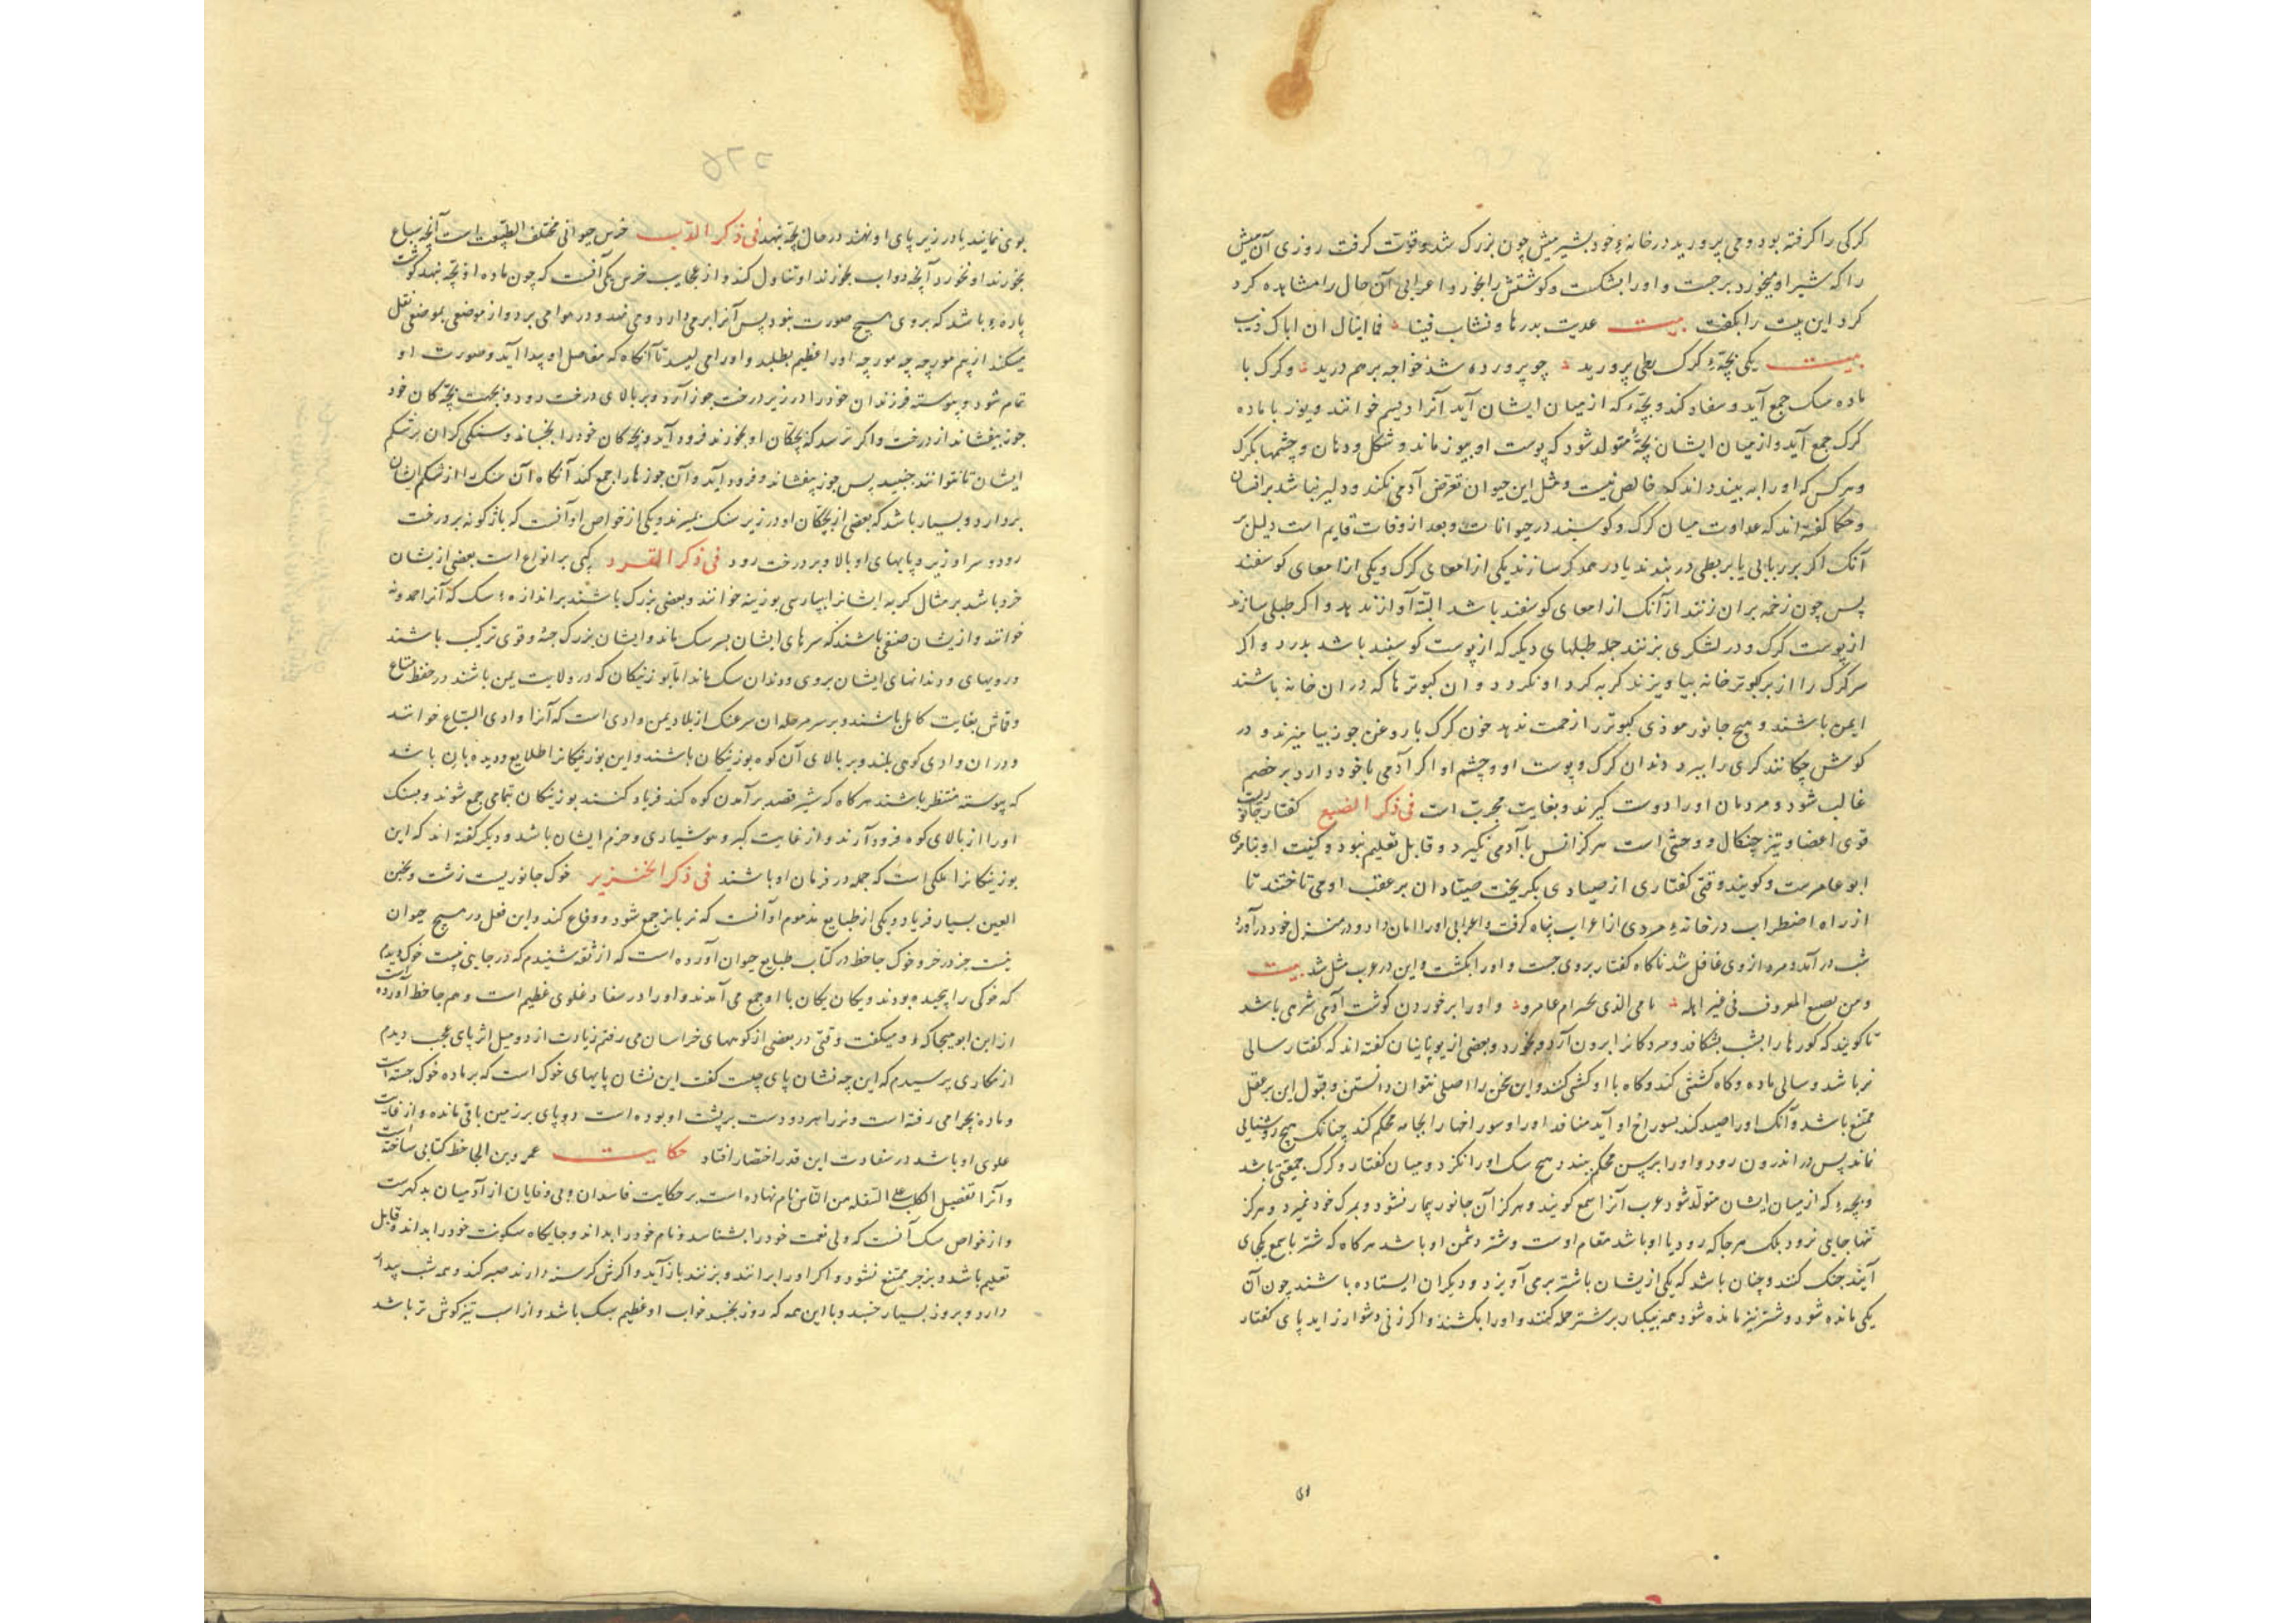 کرکی را کرفته بود و می پرورید در خانهٔ خود بشیر میش چون بزرک شد و قوت کرفت روزی آن میش
را که شیر او میخورد برجست و او را بشکست و کوشتش را بخورد اعرابی آن حال را مشاهده کرد
کرد این بیت را بکفت بیت غدیت بدرها و نشات فینا فما
بیت یکی بچهٔ کرک بطی پرورید چو پرورده شد خواجه بر هم درید و کرک با
ماده سک جمع آید و سفاد کند و بچهٔ که از میان ایشان آید آنرا دیسم خوانند و یوز با ماده
کرک جمع آید و از میان ایشان بچهٔ متولد شود که پوست او بیوز ماند و شکل و دهان و چشمها بکرک
و هر کس که او را به بیند داند که خالص نیست و مثل این حیوان تعرض آدمی نکند و دلیر نباشد بر انسان
و حکما کفته اند که عداوت میان کرک و کوسبند در حیوانات و بعد از وفات قایم است دلیل بر
آنک اکر بر ربابی یا بربطی در بندند یا در عمد کر سازند یکی از امعای کرک و یکی از امعای کوسفند
پس چون زخمه بران زنند از آنک از امعای کوسفند باشد البته آواز ندهد و اکر طبلی سازند
از پوست کرک و در لشکری بزنند جمله طبلهای دیکر که از پوست کوسبند باشد بدرد و اکر
سر کرک را از بر کبوتر خانه بیاویزند کربه کرد او نکردد و ان کبوترها که دران خانه باشند
ایمن باشند و هیچ جانور موذی کبوتر را زحمت ندهد خون کرک با روغن جوز بیامیزند و در
کوش چکانند کری را ببرد دندان کرک و پوست او و چشم او اکر آدمی با خود دارد بر خصم
غالب شود و مردمان او را دوست کیرند و بغایت مجربست فی ذکر الضبع کفتار جانوریست
قوی اعضا و تیز چنکال و وحشی است هرکز انس با آدمی نکیرد و قابل تعلیم نبود و کنیت او بتازی
ابو عامرست و کویند وقتی کفتاری از صیادی بکریخت صیادان بر عقب او می تاختند تا
از راه اضطراب در خانهٔ مردی از اعراب پناه کرفت و اعرابی او را امان داد و در منزل خود در آورد
شب در آمد و مرد از وی غافل شد ناکاه کفتار بر وی جست و او را بکشت و این در عرب مثل شد بیت
ومن یصنع المعروف فی غیر اهله و او را بر خوردن کوشت آدمی شرهی باشد
تا کویند که کورها را بشب بشکافد و مردکانرا برون آرد و بخورد و بعضی از یونانیان کفته اند که کفتار سالی
نر باشد و سالی ماده و کاه کشنی کند و کاه با او کشنی کند و این سخن را اصلی نتوان دانستن و قبول این بر عقل
ممتنع باشد و آنک او را صید کند بسوراخ او آید منافذ او را و سوراخها را بجامه محکم کند چنانک هیچ روشنایی
نماند پس در اندرون رود و او را برسن محکم ببندد هیچ سک او را نکزد و میان کفتار و کرک جمعیتی باشد
و بچهٔ که از میان ایشان متولد شود عرب آنرا سمع کویند و هرکز آن جانور بیمار نشود و بمرک خود نمیرد و هرکز
تنها جایی نرود بلک هر جا که رود با او باشد مقام اوست و شتر دشمن او باشد هرکاه که شتر با سمع یکجای
آیند جنک کنند و چنان باشد که یکی از یشان باشتر برمی آویزد و دیکران ایستاده باشند چون آن
یکی مانده شود و شتر نیز مانده شود همه بیکبار بر شتر حمله کنند و او را بکشند و اکر زنی دشوار زاید پای کفتار
بوی نمایند یا در زیر پای او نهند در حال بچه بنهد فی ذکر الدب خرس حیوانی مختلف الطبیعت است آنچه سباع
بخورند او بخورد آنچه دواب بخورند او تناول کند و از عجایب خرس یکی آنست که چون ماده او بچه بنهد کوشت
پارهٔ باشد که بر وی هیچ صورت نبود پس آنرا بر می دارد و می نهد و در هوا می برد و از موضعی بموضعی نقل
میکند از بیم مورچه چه مورچه او را عظیم بطلبد و او را می لیسد تا آنکاه که مفاصل او پیدا آید و صورت او
تمام شود و پیوسته فرزندان خود را در زیر درخت جوز آرد و بر بالای درخت رود و بجهت بچکان خود
جوز بیفشاند از درخت و اکر ترسد که بچکان او بخورند فرود آید و بچکان خود را بخسباند و سنکی کران بر شکم
ایشان تا نتوانند جنبید پس جوز بیفشاند و فرود آید و آن جوزها را جمع کند آنکاه آن سنک را از شکم ایشان
بردارد و بسیار باشد که بعضی از بچکان او در زیر سنک بمیرند و یکی از خواص او آنست که باژکونه بر درخت
رود و سر او زیر و پایهای او بالا و بر درخت رود فی ذکر القرد کپی بر انواع است بعضی از یشان
خرد باشد بر مثال کربه ایشانرا بپارسی بوزینه خوانند و بعضی بزرک باشند بر اندازهٔ سک که آنرا حمدونه
خوانند و از یشان صنفی باشند که سرهای ایشان بسر سک ماند و ایشان بزرک جثه و قوی ترکیب باشند
و رویهای و دندانهای ایشان بروی و دندان سک ماند اما بوزنیکان که در ولایت یمن باشند در حفظ متاع
و قماش بغایت کامل باشند و بر سر مرحله از بلاد یمن وادی است که آنرا وادی السباع خوانند
و دران وادی کوهی بلند و بر بالای آن کوه بوزنیکان باشند و این بوزنیکانرا طلایع و دیده بان باشد
که پیوسته منتظر باشند هرکاه که شیر قصد بر آمدن کوه کند فریاد کنند بوزنیکان تمامی جمع شوند و بسنک
او را از بالای کوه فرود آرند و از غایت کبر و هوشیاری و حزم ایشان باشد و دیکر کفته اند که این
بوزنیکانرا ملکی است که جمله در فرمان او باشند فی ذکر الخنزیر خوک جانوریست زشت و نجس
العین بسیار فریاد و یکی از طبایع مذموم او آنست که نر با نر جمع شود و وقاع کند و این فعل در هیچ حیوان
نیست جز در خر و خوک جاحظ در کتاب طبایع حیوان آورده است که از ثقه شنیدم که در جایی خوک دیدم
که خوکی را بودند و یکان یکان با او جمع می آمدند و او را در سفاد غلوی عظیم است و هم جاحظ آورده است
از ابن ابو که او میکفت وقتی در بعضی از کوههای خراسان می رفتم زیادت از دو میل اثر پای عجب دیدم
از مکاری پرسیدم که این چه نشان پای چیست کفت این نشان پایهای خوک است که بر ماده خوک جسته است
و ماده بچرا می رفته است و نر را هر دو دست بر پشت او بوده است دو پای بر زمین باقی مانده و از غایت
علوی او باشد در سفاد این قدر اختصار افتاد حکایت عمرو بن الجاحظ کتابی ساخته است
و آنرا تفضیل الکلب علی السفله من الناس نام نهاده است بر حکایت فاسدان و بی وفایان از آدمیان
و از خواص سک آنست که ولی نعمت خود را بشناسد و نام خود را بداند و جایکاه سکونت خود را بداند و قابل
تعلیم باشد و بزجر ممتنع نشود و اکر او را برانند و بزنند باز آید و اکرش کرسنه دارند صبر کند و همه شب بیدار
دارد و بروز بسیار خسبد و با این همه که روز بخسبد خواب او عظیم سبک باشد و از اسب تیز کوش تر باشد